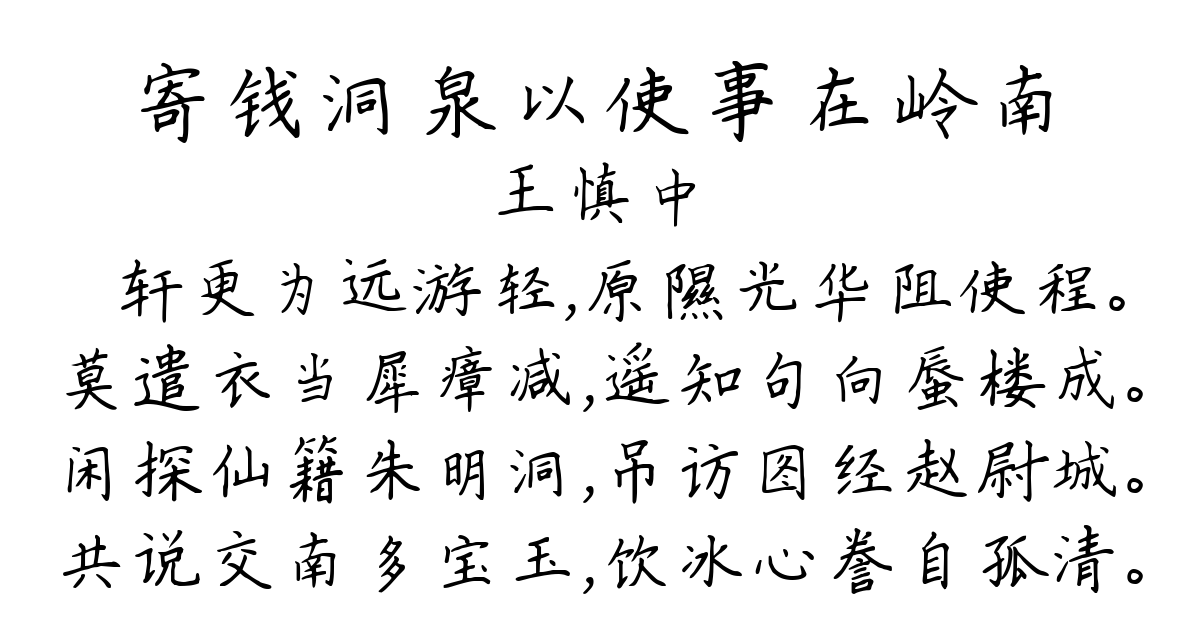 寄钱洞泉以使事在岭南
王慎中
轩更为远游轻,原隰光华阻使程。
莫遣衣当犀瘴减,遥知句向蜃楼成。
闲探仙籍朱明洞,吊访图经赵尉城。
共说交南多宝玉,饮冰心誊自孤清。